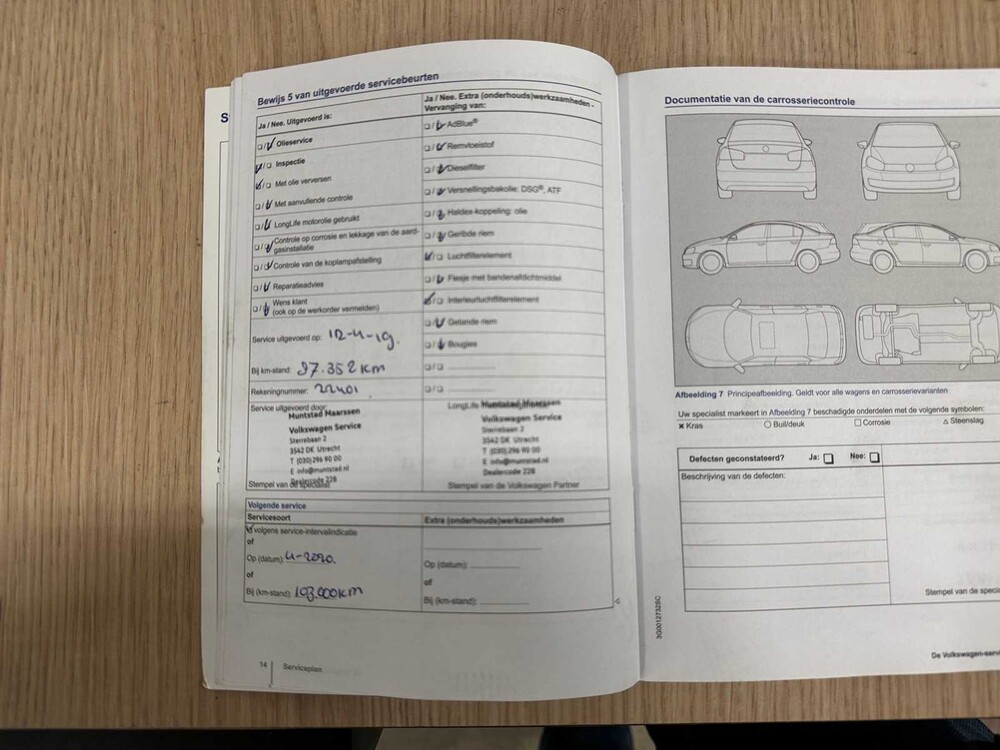 S
Bewijs 5 van uitgevoerde servicebeurten
Ja / Nee. Uitgevoerd is:
☐/☑ Olieservice
☑/☐ Inspectie
☑/☐ Met olie verversen
☐/☑ Met aanvullende controle
☐/☑ LongLife motorolie gebruikt
☐/☑ Controle op corrosie en lekkage van de aard-
gasinstallatie
☐/☑ Controle van de koplampafstelling
☐/☑ Reparatieadvies
☐/☑ Wens klant
(ook op de werkorder vermelden)
Service uitgevoerd op: 12-4-19.
Bij km-stand: 97.352 KM
Rekeningnummer: 22401
Service uitgevoerd door:
Muntstad Maarssen
Volkswagen Service
Sterrebaan 2
3542 DK Utrecht
T (030) 296 90 00
E info@muntstad.nl
Dealercode 228
Stempel van de specialist
Ja / Nee. Extra (onderhouds)werkzaamheden -
Vervanging van:
☐/☑ AdBlue®
☐/☑ Remvloeistof
☐/☑ Dieselfilter
☐/☑ Versnellingsbakolie: DSG®, ATF
☐/☑ Haldex-koppeling: olie
☐/☑ Geribde riem
☑/☐ Luchtfilterelement
☐/☑ Flesje met bandenafdichtmiddel
☑/☐ Interieurluchtfilterelement
☐/☑ Getande riem
☐/☑ Bougies
☐/☐
☐/☐
LongLife
Muntstad Maarssen
Volkswagen Service
Sterrebaan 2
3542 DK Utrecht
T (030) 296 90 00
E info@muntstad.nl
Dealercode 228
Stempel van de Volkswagen Partner
Volgende service
Servicesoort
☑ volgens service-intervalindicatie
of
Op (datum): 4-2020.
of
Bij (km-stand): 103.000KM
Extra (onderhouds)werkzaamheden
Op (datum):
of
Bij (km-stand):
14
Serviceplan
Documentatie van de carrosseriecontrole
Afbeelding 7 Principeafbeelding. Geldt voor alle wagens en carrosserievarianten
Uw specialist markeert in Afbeelding 7 beschadigde onderdelen met de volgende symbolen:
✖ Kras ○ Buil/deuk ☐ Corrosie △ Steenslag
Defecten geconstateerd? Ja: ☐ Nee: ☐
Beschrijving van de defecten:
Stempel van de speci
3G0012732SC
De Volkswagen-serv